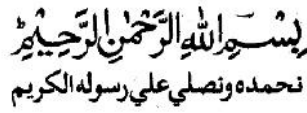 بِسْمِ اللهِ الرَّحْمٰنِ الرَّحِيْمِ
نحمده ونصلي علي رسوله الكريم